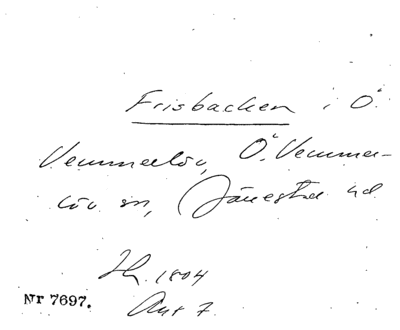 Frisbacken i Ö
Vemmerlöv, Ö. Vemmer-
löv sn, Järrestad hd
1804
Nr 7697.
Akt 7